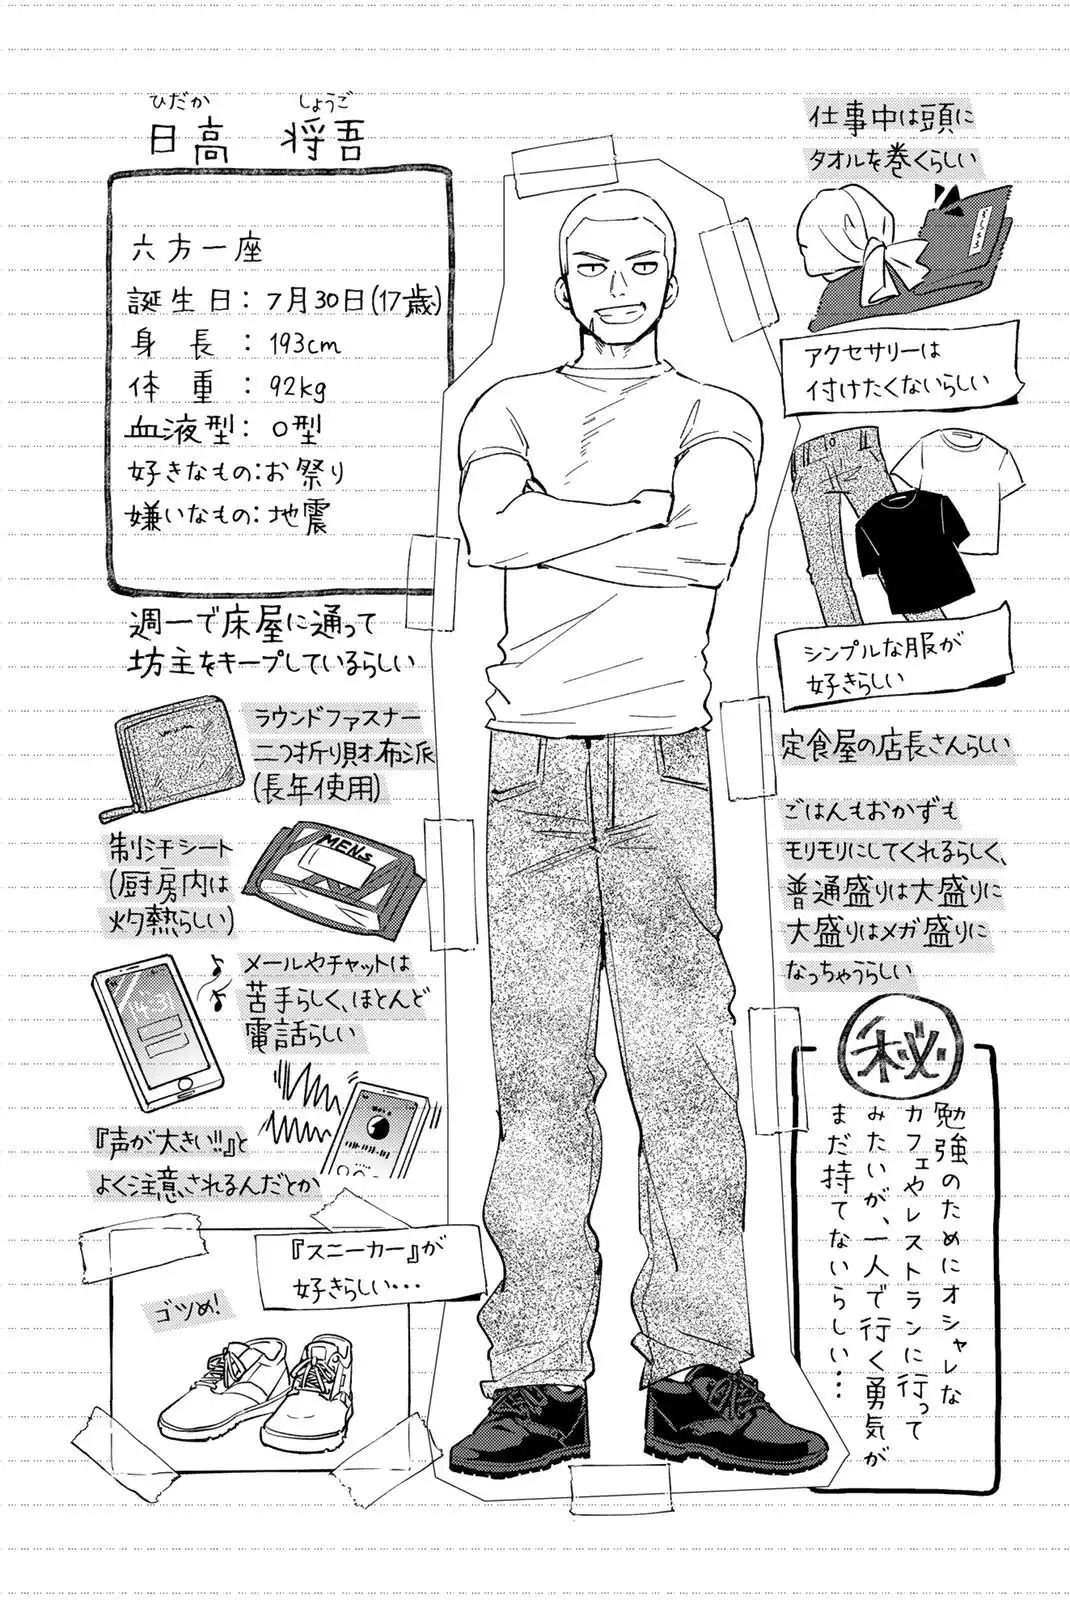 ひだか しょうご
日高 将吾
六方一座
誕生日：7月30日(17歳)
身長：193cm
体重：92kg
血液型：O型
好きなもの：お祭り
嫌いなもの：地震
週一で床屋に通って
坊主をキープしているらしい
ラウンドファスナー
二つ折り財布派
(長年使用)
制汗シート
(厨房内は
灼熱らしい)
MENS
メールやチャットは
苦手らしく、ほとんど
電話らしい
14:31
『声が大きい!!』と
よく注意されるんだとか
『スニーカー』が
好きらしい…
ゴツめ!
仕事中は頭に
タオルを巻くらしい
アクセサリーは
付けたくないらしい
シンプルな服が
好きらしい
定食屋の店長さんらしい
ごはんもおかずも
モリモリにしてくれるらしく、
普通盛りは大盛りに
大盛りはメガ盛りに
なっちゃうらしい
秘
勉強のためにオシャレな
カフェやレストランに行って
みたいが、一人で行く勇気が
まだ持てないらしい…